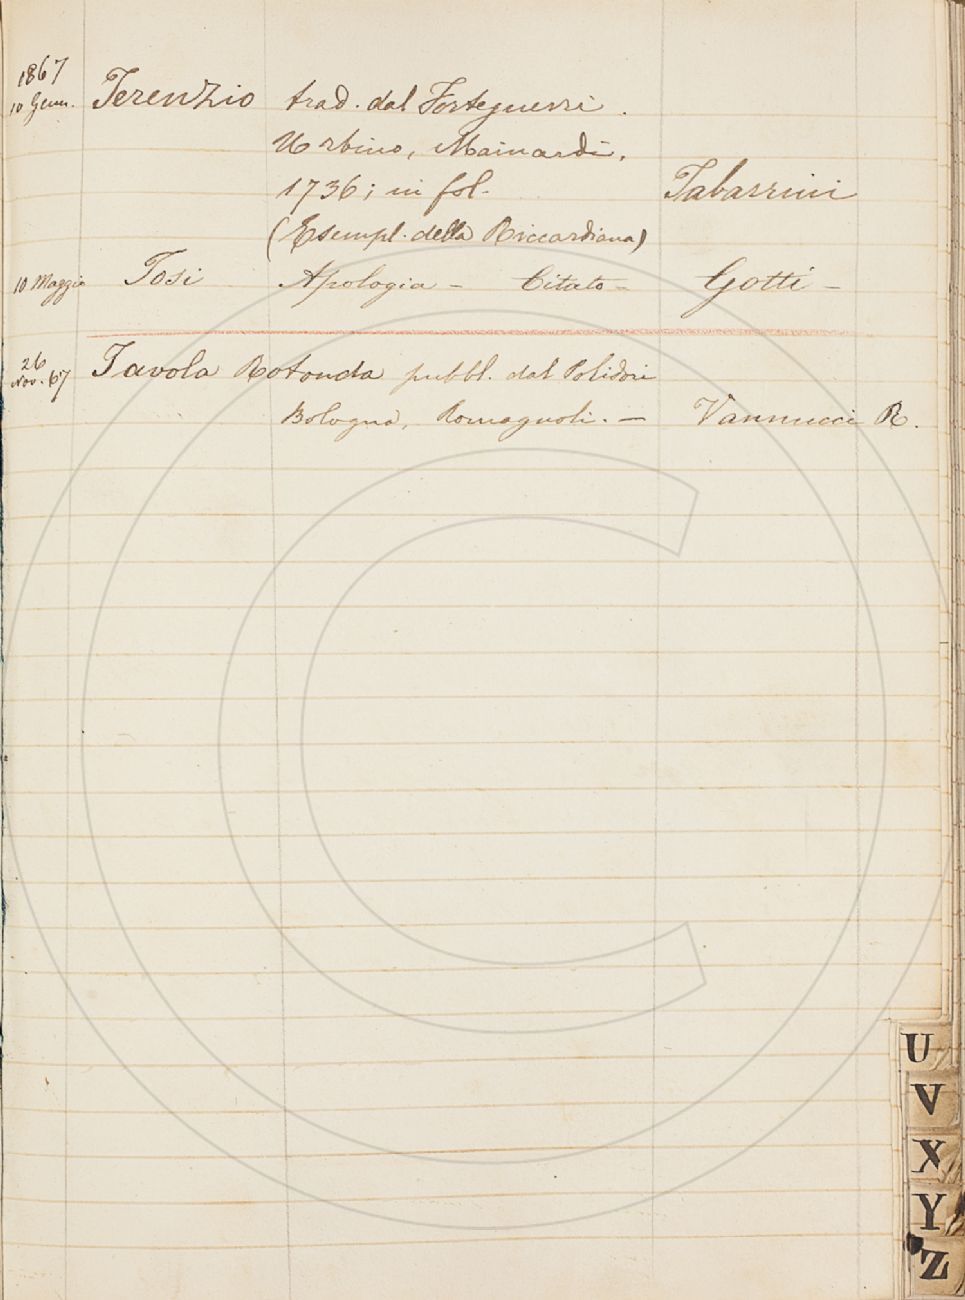 1867
10 Genn. Terenzio trad. dal Forteguerri.
Urbino, Mainardi,
1736; in fol. Tabarrini
(Esempl. della Riccardiana)
10 Maggio Tosi Apologia - Citato - Gotti -
26
Nov. 67 Tavola Rotonda pubbl. dal Polidori
Bologna, Romagnoli. — Vannucci R.
U
V
X
Y
Z